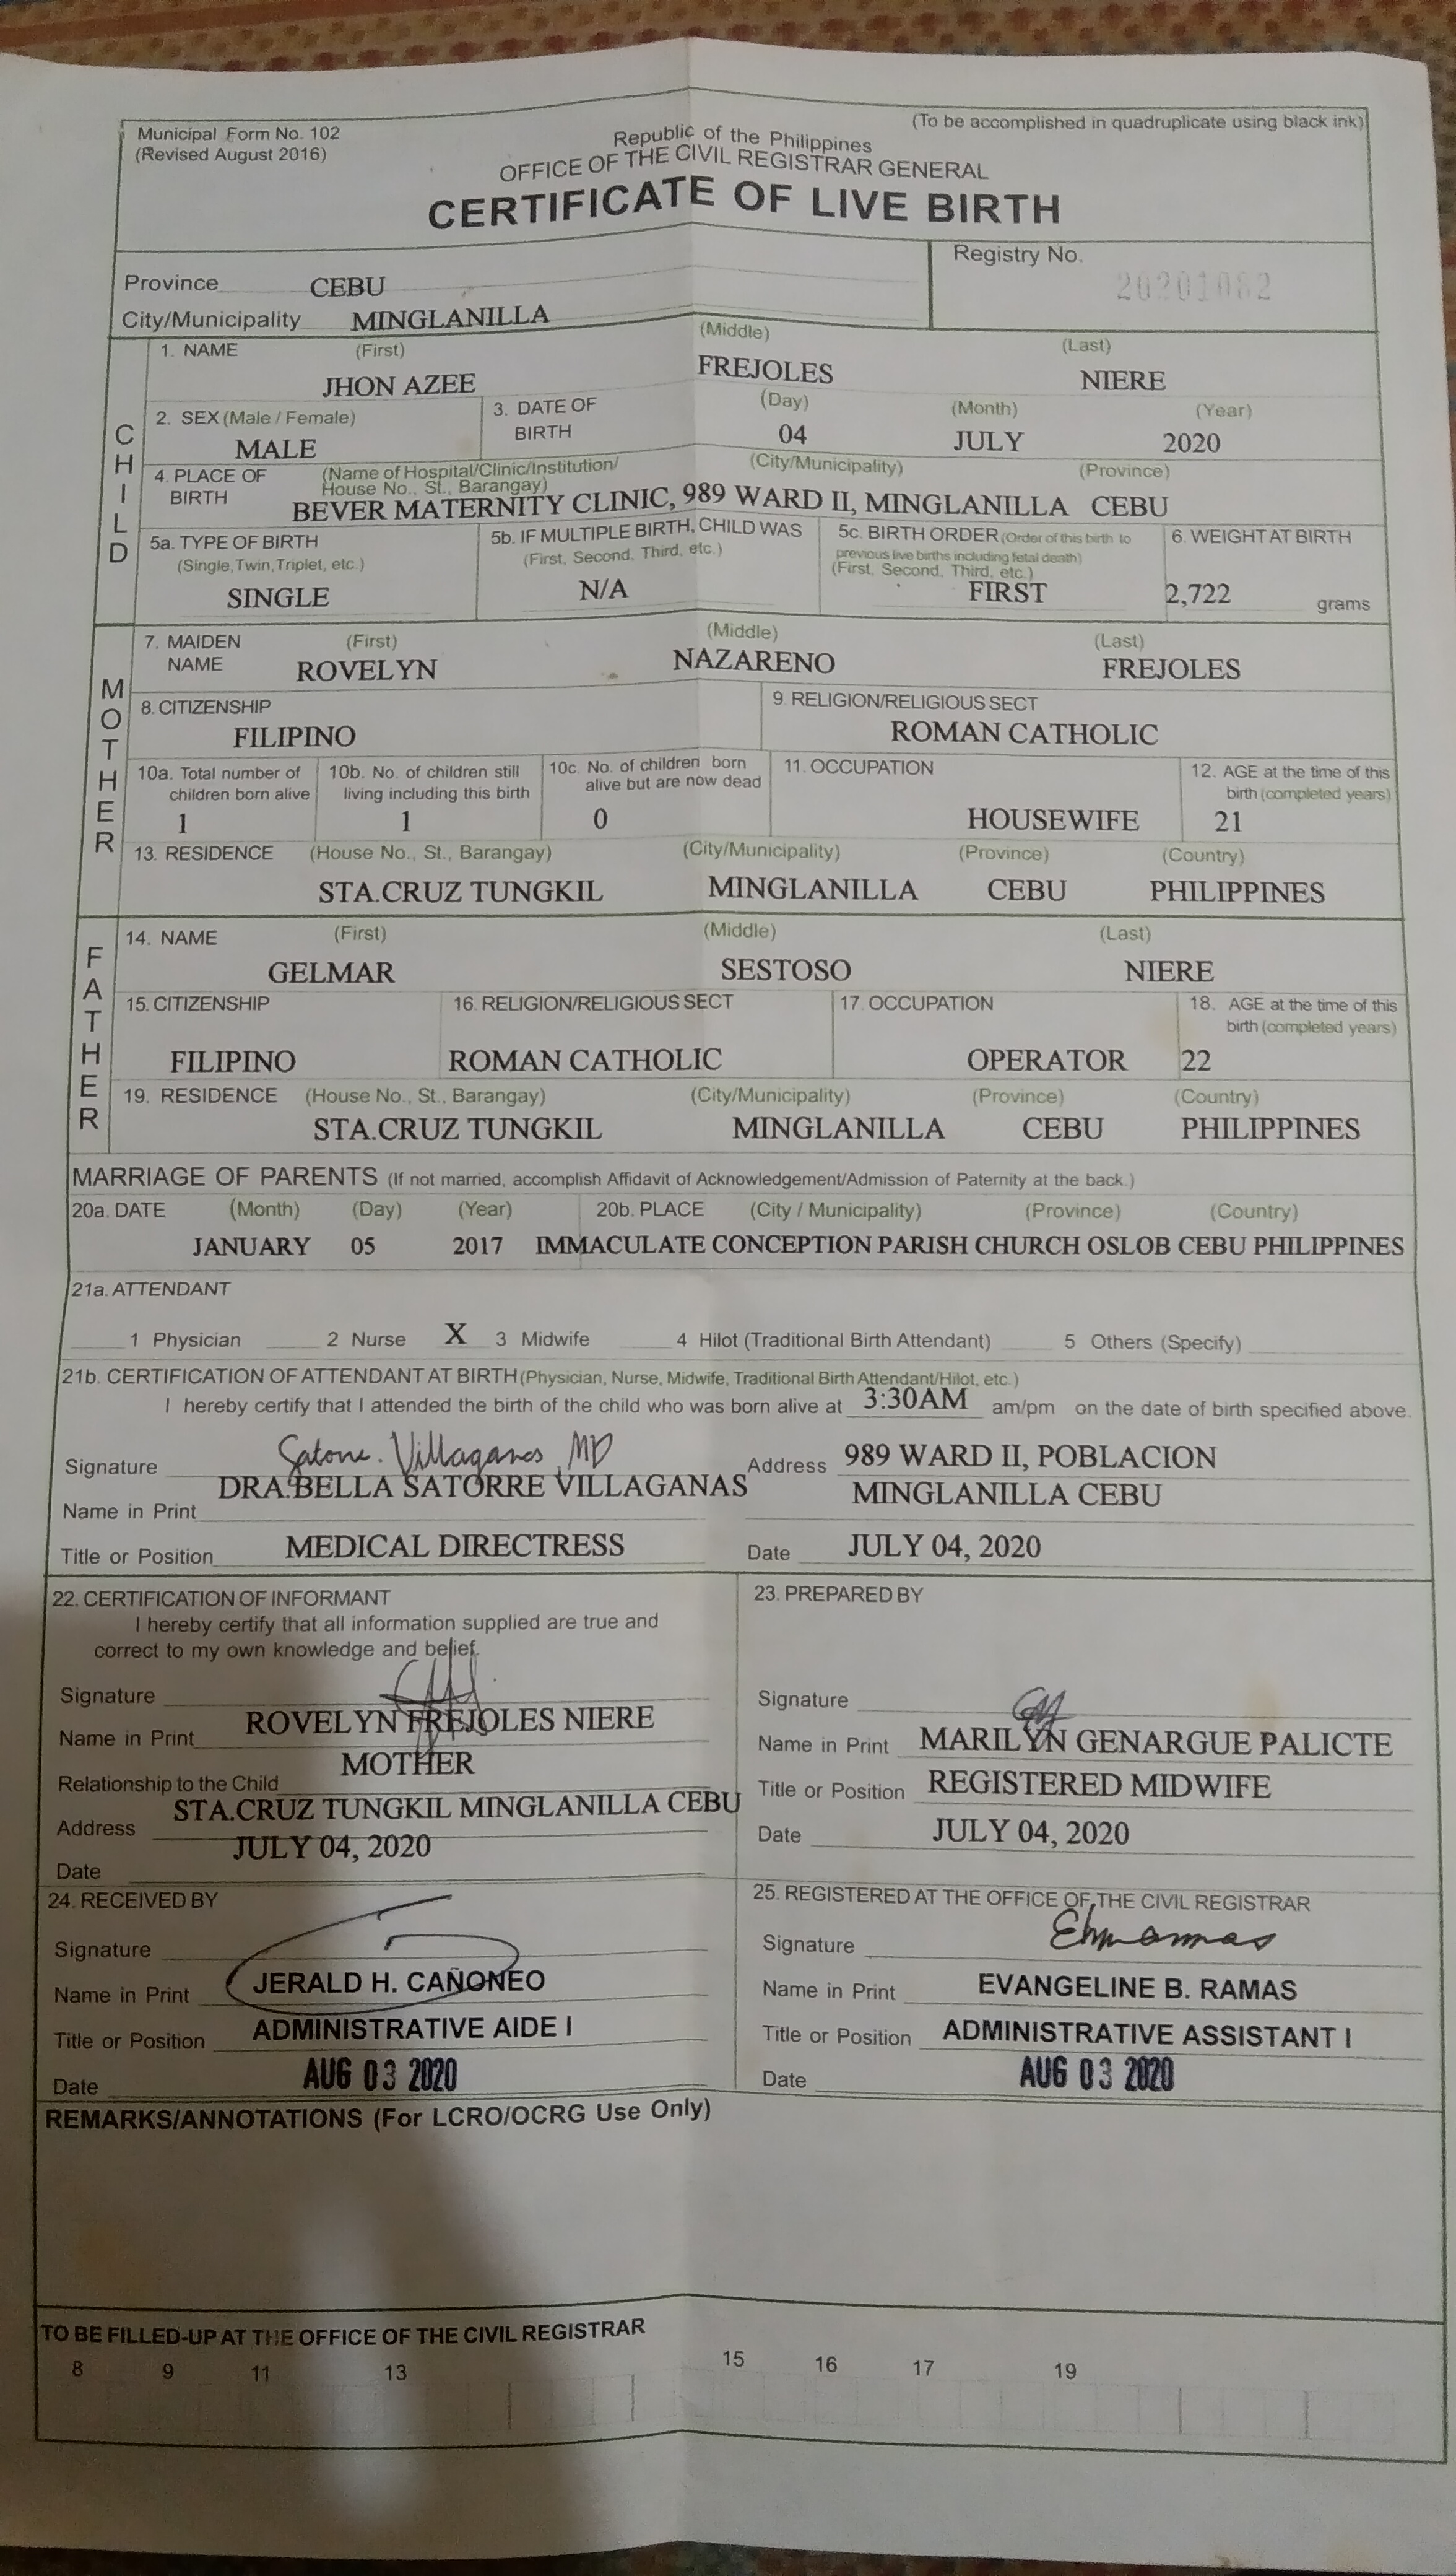 Municipal Form No. 102
(Revised August 2016)
(To be accomplished in quadruplicate using black ink)
Republic of the Philippines
OFFICE OF THE CIVIL REGISTRAR GENERAL
CERTIFICATE OF LIVE BIRTH
Province CEBU
City/Municipality MINGLANILLA
Registry No.
20201082
CHILD
1. NAME (First) (Middle) (Last)
JHON AZEE FREJOLES NIERE
2. SEX (Male / Female) 3. DATE OF BIRTH (Day) (Month) (Year)
MALE 04 JULY 2020
4. PLACE OF BIRTH (Name of Hospital/Clinic/Institution/ House No., St., Barangay) (City/Municipality) (Province)
BEVER MATERNITY CLINIC, 989 WARD II, MINGLANILLA CEBU
5a. TYPE OF BIRTH (Single, Twin, Triplet, etc.)
SINGLE
5b. IF MULTIPLE BIRTH, CHILD WAS (First, Second, Third, etc.)
N/A
5c. BIRTH ORDER (Order of this birth to previous live births including fetal death) (First, Second, Third, etc.)
FIRST
6. WEIGHT AT BIRTH
2,722 grams
MOTHER
7. MAIDEN NAME (First) (Middle) (Last)
ROVELYN NAZARENO FREJOLES
8. CITIZENSHIP
FILIPINO
9. RELIGION/RELIGIOUS SECT
ROMAN CATHOLIC
10a. Total number of children born alive
1
10b. No. of children still living including this birth
1
10c. No. of children born alive but are now dead
0
11. OCCUPATION
HOUSEWIFE
12. AGE at the time of this birth (completed years)
21
13. RESIDENCE (House No., St., Barangay) (City/Municipality) (Province) (Country)
STA.CRUZ TUNGKIL MINGLANILLA CEBU PHILIPPINES
FATHER
14. NAME (First) (Middle) (Last)
GELMAR SESTOSO NIERE
15. CITIZENSHIP
FILIPINO
16. RELIGION/RELIGIOUS SECT
ROMAN CATHOLIC
17. OCCUPATION
OPERATOR
18. AGE at the time of this birth (completed years)
22
19. RESIDENCE (House No., St., Barangay) (City/Municipality) (Province) (Country)
STA.CRUZ TUNGKIL MINGLANILLA CEBU PHILIPPINES
MARRIAGE OF PARENTS (If not married, accomplish Affidavit of Acknowledgement/Admission of Paternity at the back.)
20a. DATE (Month) (Day) (Year) 20b. PLACE (City / Municipality) (Province) (Country)
JANUARY 05 2017 IMMACULATE CONCEPTION PARISH CHURCH OSLOB CEBU PHILIPPINES
21a. ATTENDANT
1 Physician 2 Nurse X 3 Midwife 4 Hilot (Traditional Birth Attendant) 5 Others (Specify)
21b. CERTIFICATION OF ATTENDANT AT BIRTH (Physician, Nurse, Midwife, Traditional Birth Attendant/Hilot, etc.)
I hereby certify that I attended the birth of the child who was born alive at 3:30AM am/pm on the date of birth specified above.
Signature Satorre. Villaganas, MD
Name in Print DRA.BELLA SATORRE VILLAGANAS
Title or Position MEDICAL DIRECTRESS
Address 989 WARD II, POBLACION
MINGLANILLA CEBU
Date JULY 04, 2020
22. CERTIFICATION OF INFORMANT
I hereby certify that all information supplied are true and
correct to my own knowledge and belief.
Signature
Name in Print ROVELYN FREJOLES NIERE
Relationship to the Child MOTHER
Address STA.CRUZ TUNGKIL MINGLANILLA CEBU
Date JULY 04, 2020
23. PREPARED BY
Signature
Name in Print MARILYN GENARGUE PALICTE
Title or Position REGISTERED MIDWIFE
Date JULY 04, 2020
24. RECEIVED BY
Signature
Name in Print JERALD H. CAÑONEO
Title or Position ADMINISTRATIVE AIDE I
Date AUG 03 2020
25. REGISTERED AT THE OFFICE OF THE CIVIL REGISTRAR
Signature
Name in Print EVANGELINE B. RAMAS
Title or Position ADMINISTRATIVE ASSISTANT I
Date AUG 03 2020
REMARKS/ANNOTATIONS (For LCRO/OCRG Use Only)
TO BE FILLED-UP AT THE OFFICE OF THE CIVIL REGISTRAR
8 9 11 13 15 16 17 19